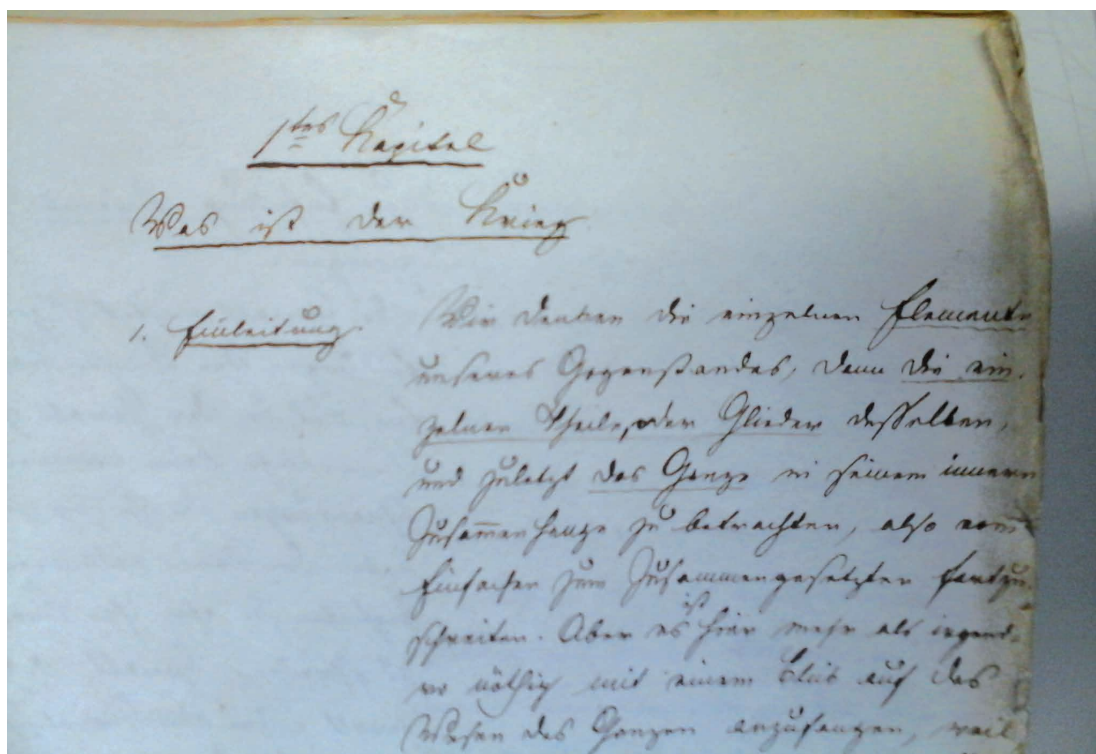 1tes Kapitel
Was ist der Krieg
1. Einleitung.
Wir denken die einzelnen Elemente
unseres Gegenstandes, dann die ein-
zelnen Theile, oder Glieder desselben,
und zuletzt das Ganze in seinem innern
Zusam̄enhange zu betrachten, also vom
Einfachen zum Zusammengesetzten fortzu-
schreiten. Aber es ist hier mehr als irgend-
wo nöthig mit einem Blick auf das
Wesen des Ganzen anzufangen, weil